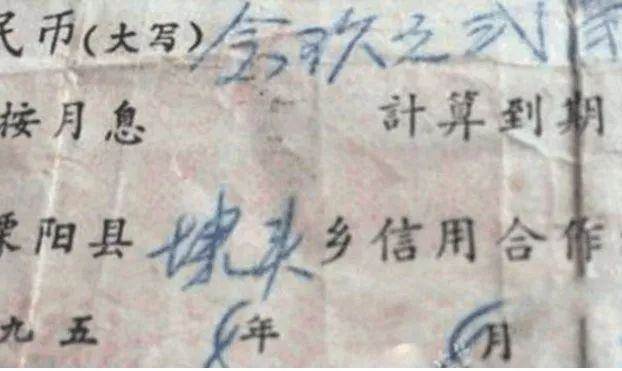 民币(大写)仝玖元贰
按月息 計算到期
溧阳县埭头乡信用合作
九五 年 月